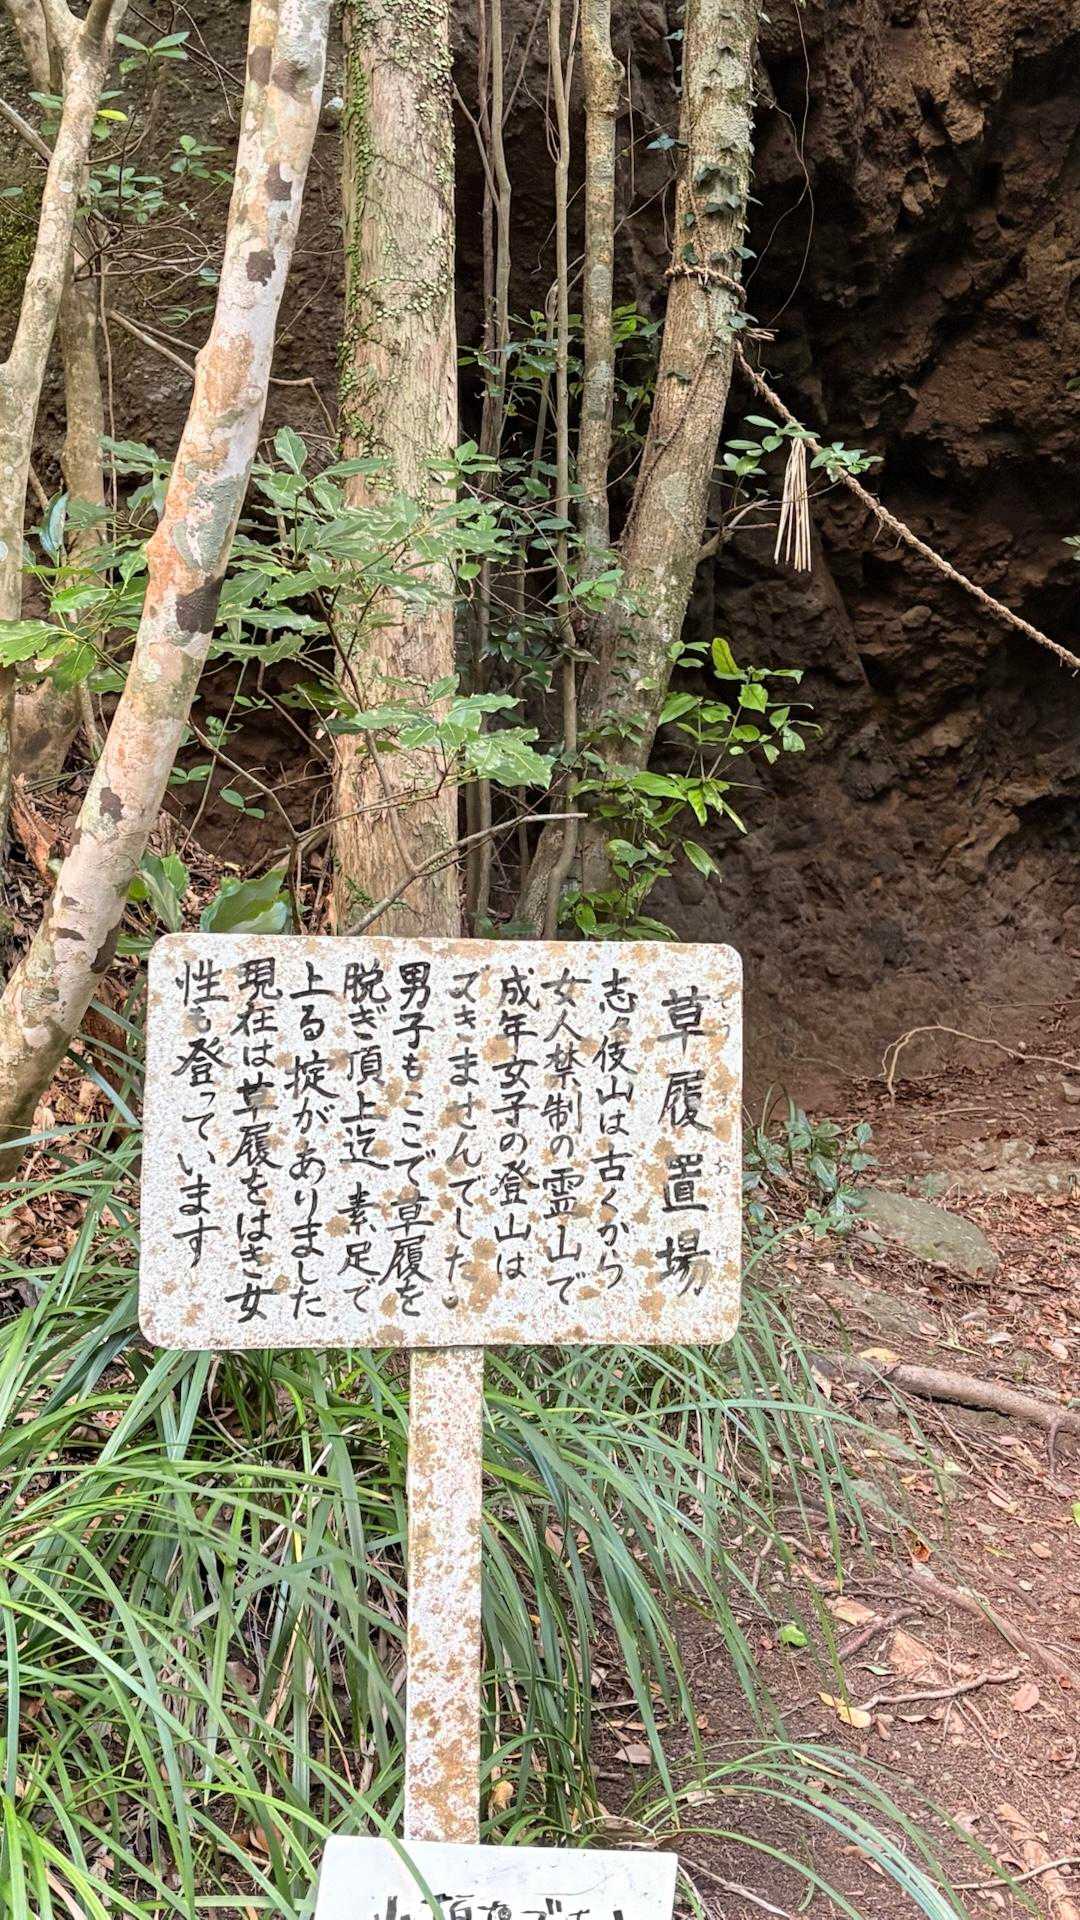 草履置場
志々伎山は古くから
女人禁制の霊山で
成年女子の登山は
できませんでした。
男子もここで草履を
脱ぎ頂上迄素足で
上る掟がありました
現在は草履をはき女
性も登っています